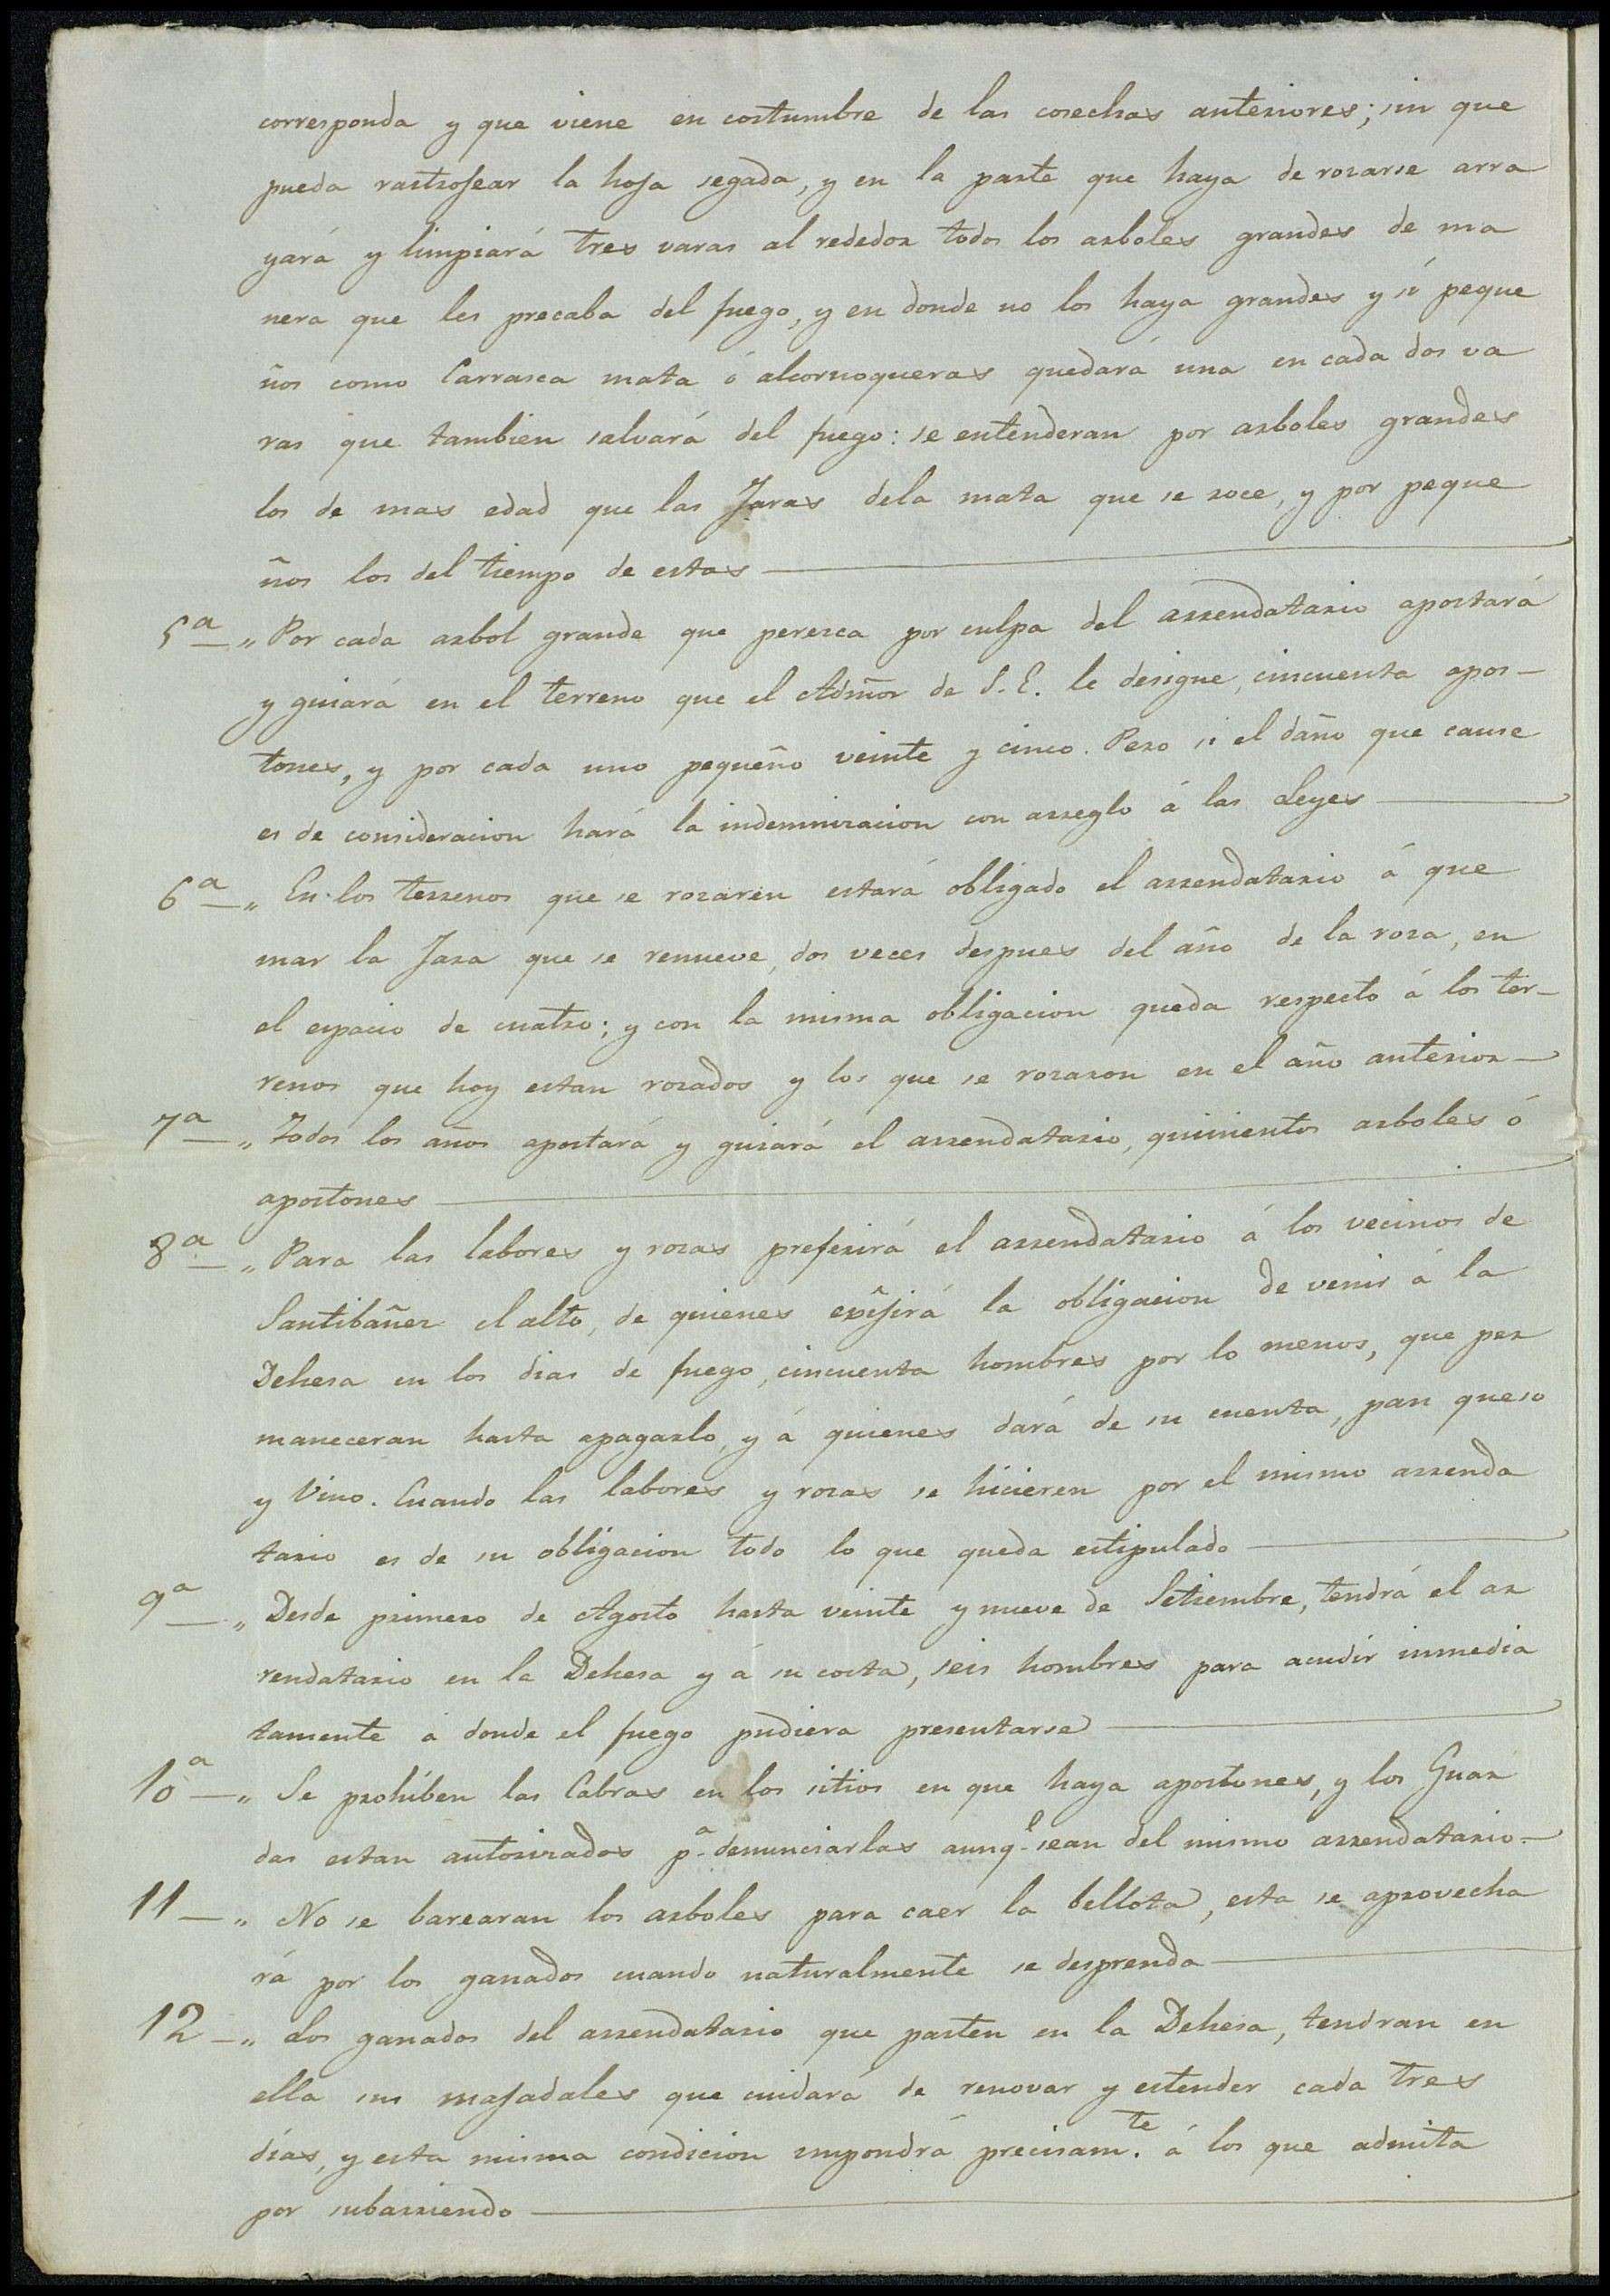 corresponda y que viene en costumbre de las cosechas anteriores; sin que
pueda rastrojear la hoja segada, y en la parte que haya de rozarse arra
yará y limpiará tres varas al rededor todos los arboles grandes de ma
nera que les precaba del fuego, y en donde no los haya grandes y sí peque
ños como Carrasca mata ó alcornoqueras quedará una en cada dos va
ras que tambien salvará del fuego: se entenderan por arboles grandes
los de mas edad que las Jaras dela mata que se roce, y por peque
ños los del tiempo de estas
5ª " Por cada arbol grande que perezca por culpa del arrendatario apostará
y guiará en el terreno que el Admõr de S. E. le designe, cincuenta apos-
tones, y por cada uno pequeño veinte y cinco. Pero si el daño que cause
es de consideracion hará la indemnizacion con arreglo á las Leyes
6ª " En los terrenos que se rozaren estará obligado el arrendatario á que
mar la Jara que se renueve, dos veces despues del año de la roza, en
el espacio de cuatro; y con la misma obligacion queda respecto á los ter-
renos que hoy estan rozados y los que se rozaron en el año anterior
7ª " Todos los años apostará y guiará el arrendatario, quinientos arboles ó
apostones
8ª " Para las labores y rozas preferirá el arrendatario á los vecinos de
Santibañez el alto, de quienes exîjirá la obligacion de venir á la
Dehesa en los dias de fuego, cincuenta hombres por lo menos, que per
maneceran hasta apagarlo, y á quienes dará de su cuenta, pan queso
y Vino. Cuando las labores y rozas se hicieren por el mismo arrenda
tario es de su obligacion todo lo que queda estipulado
9ª " Desde primero de Agosto hasta veinte y nueve de Setiembre, tendrá el ar
rendatario en la Dehesa y á su costa, seis hombres para acudir inmedia
tamente á donde el fuego pudiera presentarse
10ª " Se prohiben las Cabras en los sitios en que haya apostones, y los Guar
das estan autorizados pª denunciarlas aunqe sean del mismo arrendatario.
11 " No se barearan los arboles para caer la bellota, esta se aprovecha
rá por los ganados cuando naturalmente se desprenda
12 " Los ganados del arrendatario que pasten en la Dehesa, tendran en
ella sus majadales que cuidará de renovar y estender cada tres
días, y esta misma condicion impondrá precisam.te á los que admita
por subarriendo